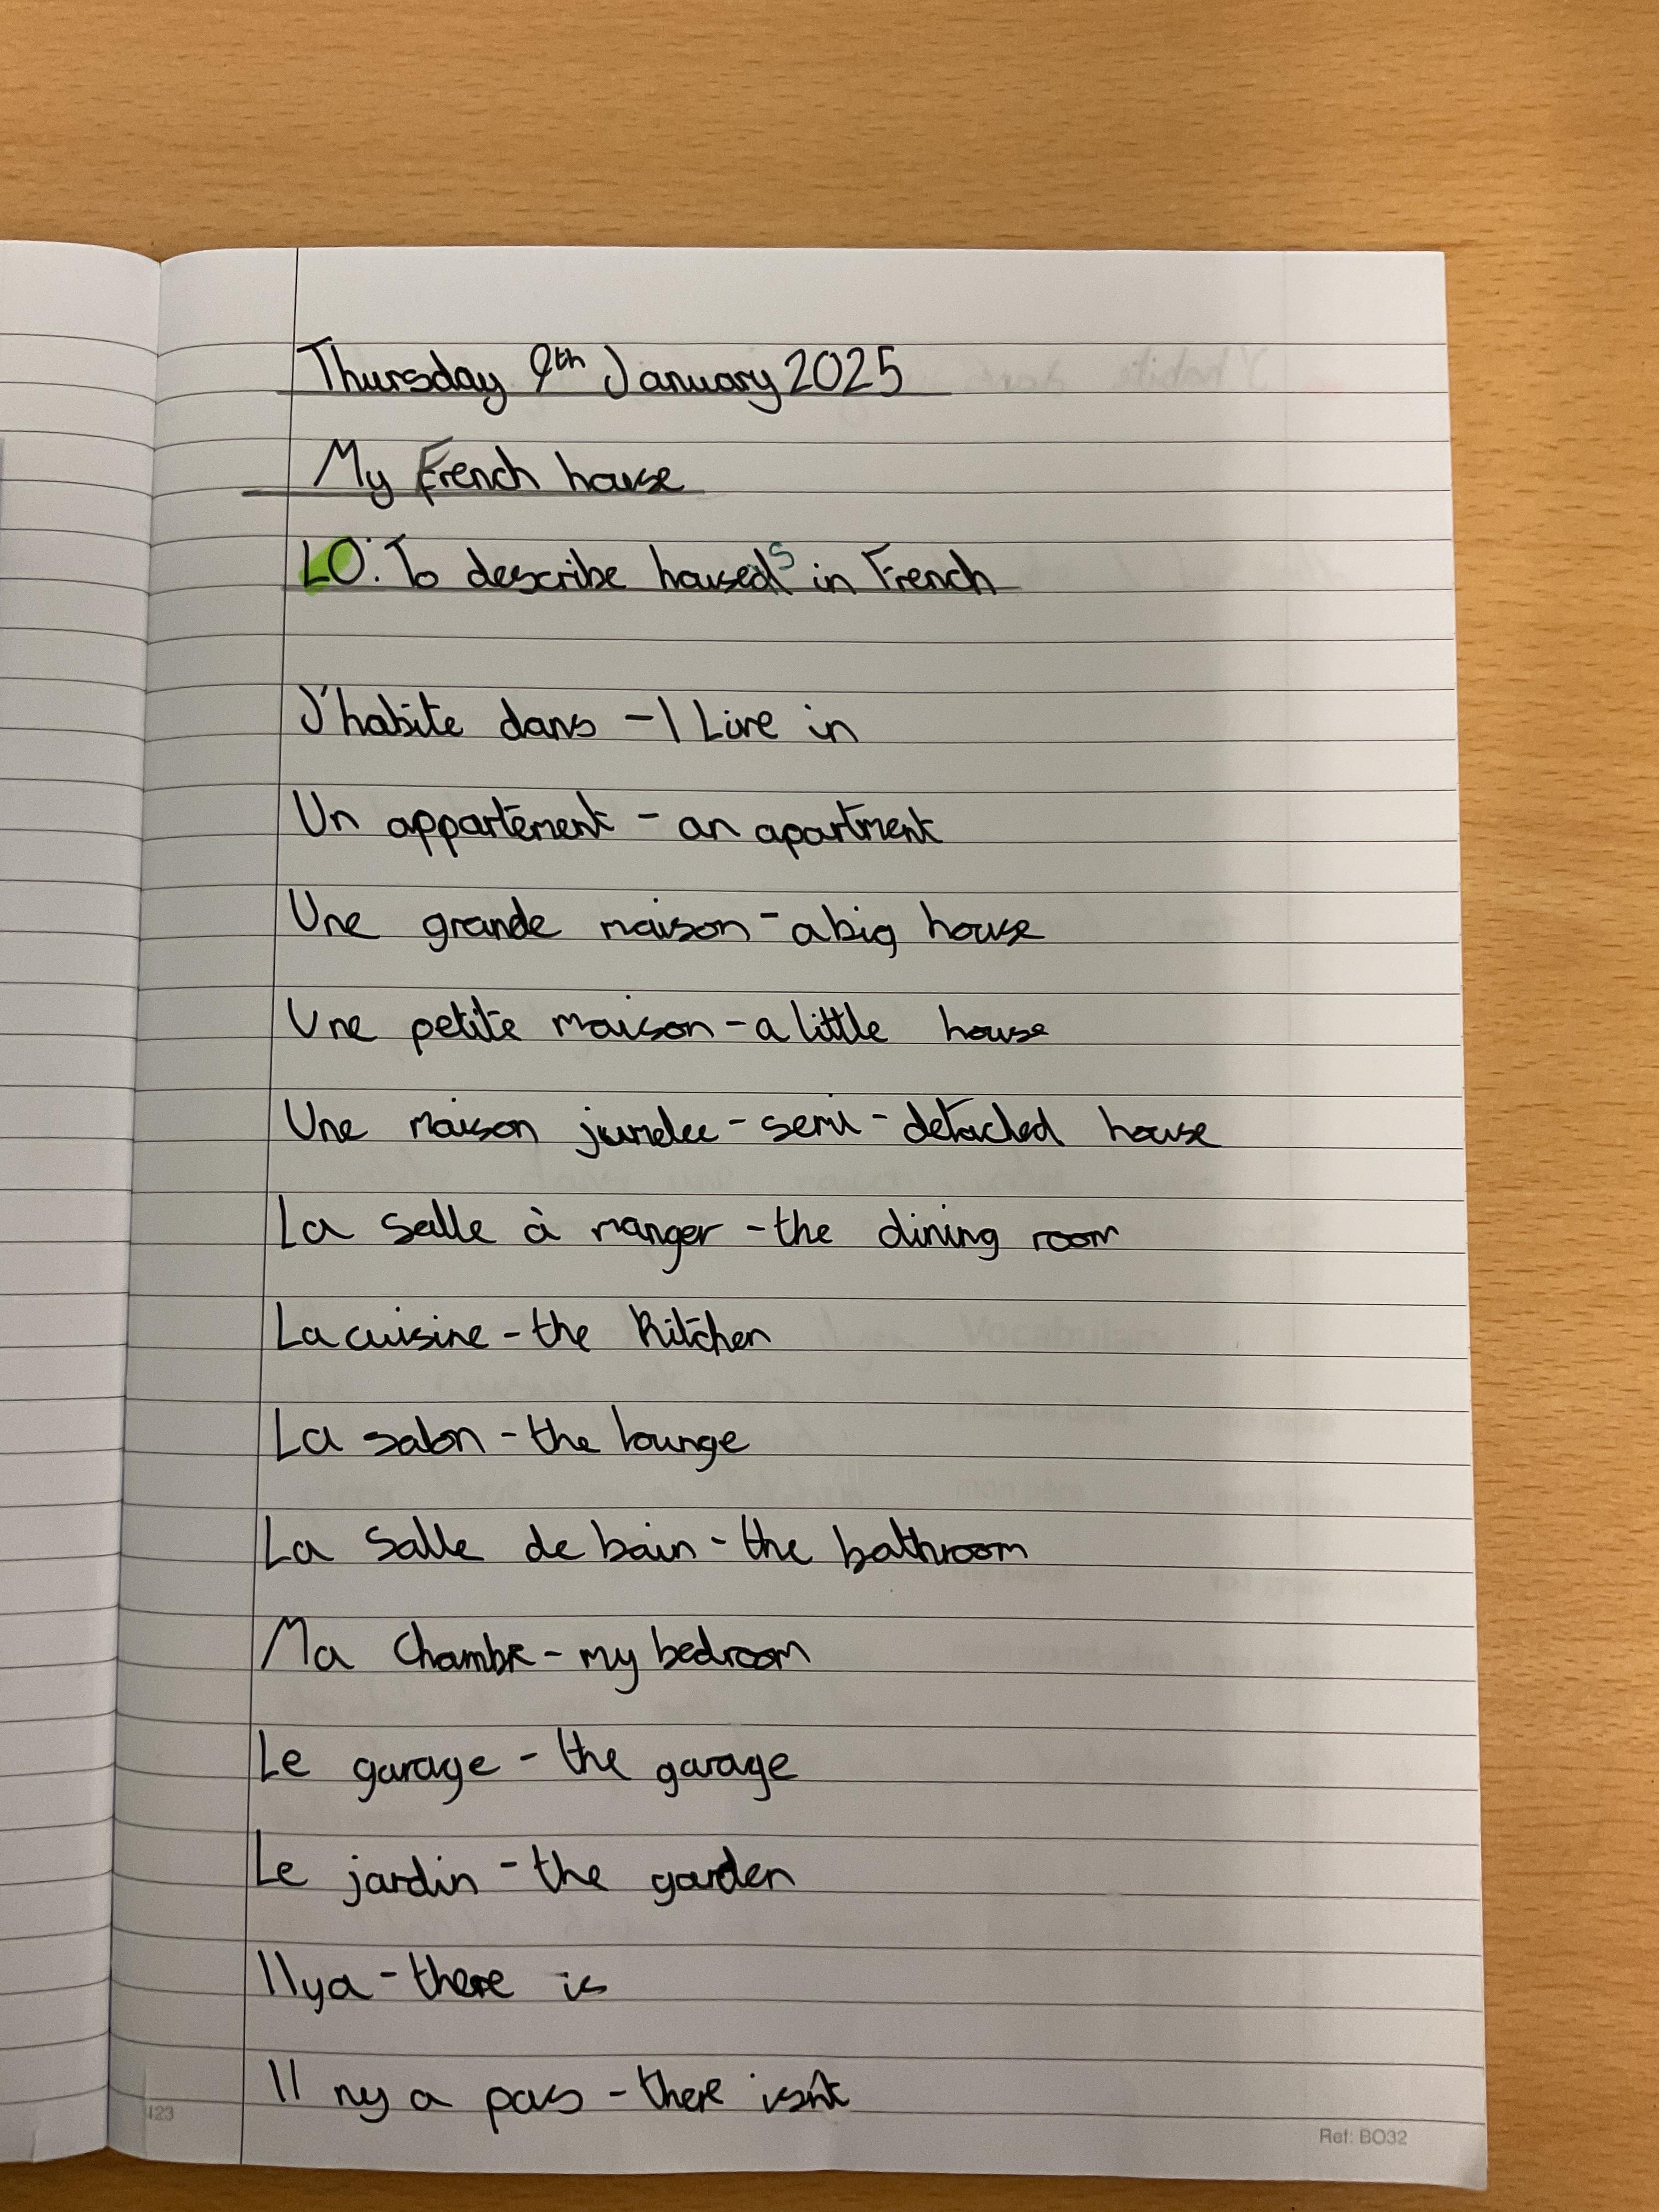 Thursday 9th January 2025
My French house
LO: To describe houses in French
J'habite dans - I Live in
Un appartement - an apartment
Une grande maison - a big house
Une petite maison - a little house
Une maison jumelee - semi-detached house
La salle à manger - the dining room
La cuisine - the Kitchen
La salon - the lounge
La salle de bain - the bathroom
Ma Chambre - my bedroom
Le garage - the garage
Le jardin - the garden
Il ya - there is
Il ny a pas - there isn't
123
Ref: BO32